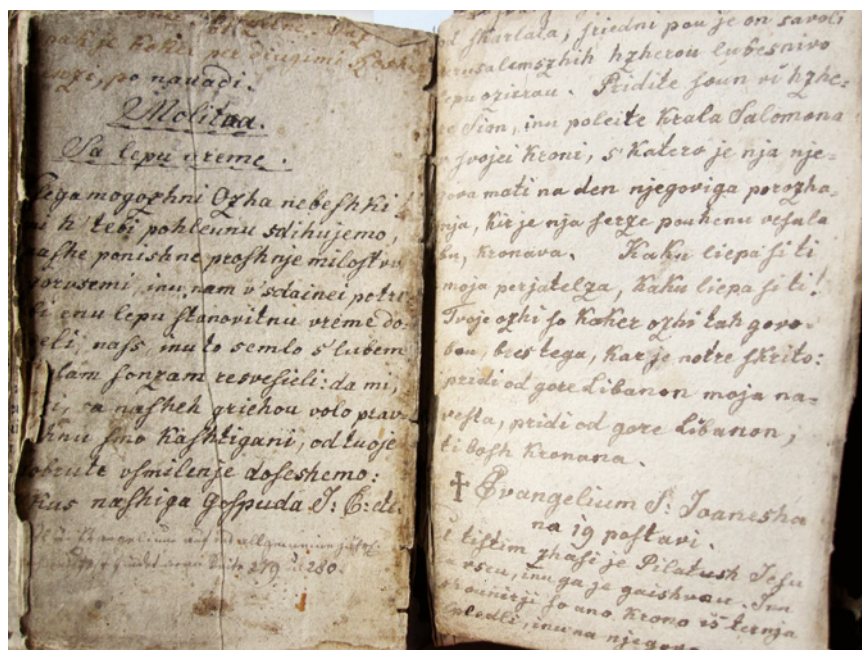 pak je koker per drugimi
po navadi.
Molitva.
Sa lepu vreme.
mogozhni Ozha nebeſhki!
h' tebi pohleunu sdihujemo,
naſhe ponishne proſhnje miloſtvu
inu nam v' sdainei potre-
enu lepu ſtanovitnu vreme do-
naſs, inu to semlo s' lubem
ſonzam resveſieli: da mi,
sa naſheh griehou volo prav-
ſmo kaſhtigani, od tvoje
dobrute vſmilenje doſeshemo:
naſhiga Goſpuda J: C: etc.
Seite 279 u 280.
ſkarlata, ſriedni pou je on savoli
Jerusalemſzhih hzherou lubesnivo
ozierou. Pridite ſoun vi hzhe-
re Sion, inu poleite krala Salomona
v ſvojei kroni, s' katero je nja nje-
gova mati na den njegoviga porozha-
nja, kir je nja ſerze pouhenu veſela
blu, kronava. Kaku liepa ſi ti
moja perjatelza, kaku liepa ſi ti!
Tvoje ozhi ſo koker ozhi tah golo-
bou, bres tega, kar je notre ſkrito:
pridi od gore Libanon moja na-
veſta, pridi od gore Libanon,
ti boſh kronana.
† Evangelium S: Joaneſha
na 19 poſtavi.
V tiſtim zhaſi je Pilatuſh Jeſu
inu ga je gaishvau. Inu
ſo ano krono is ternja
ſpledli, inu na njegovo